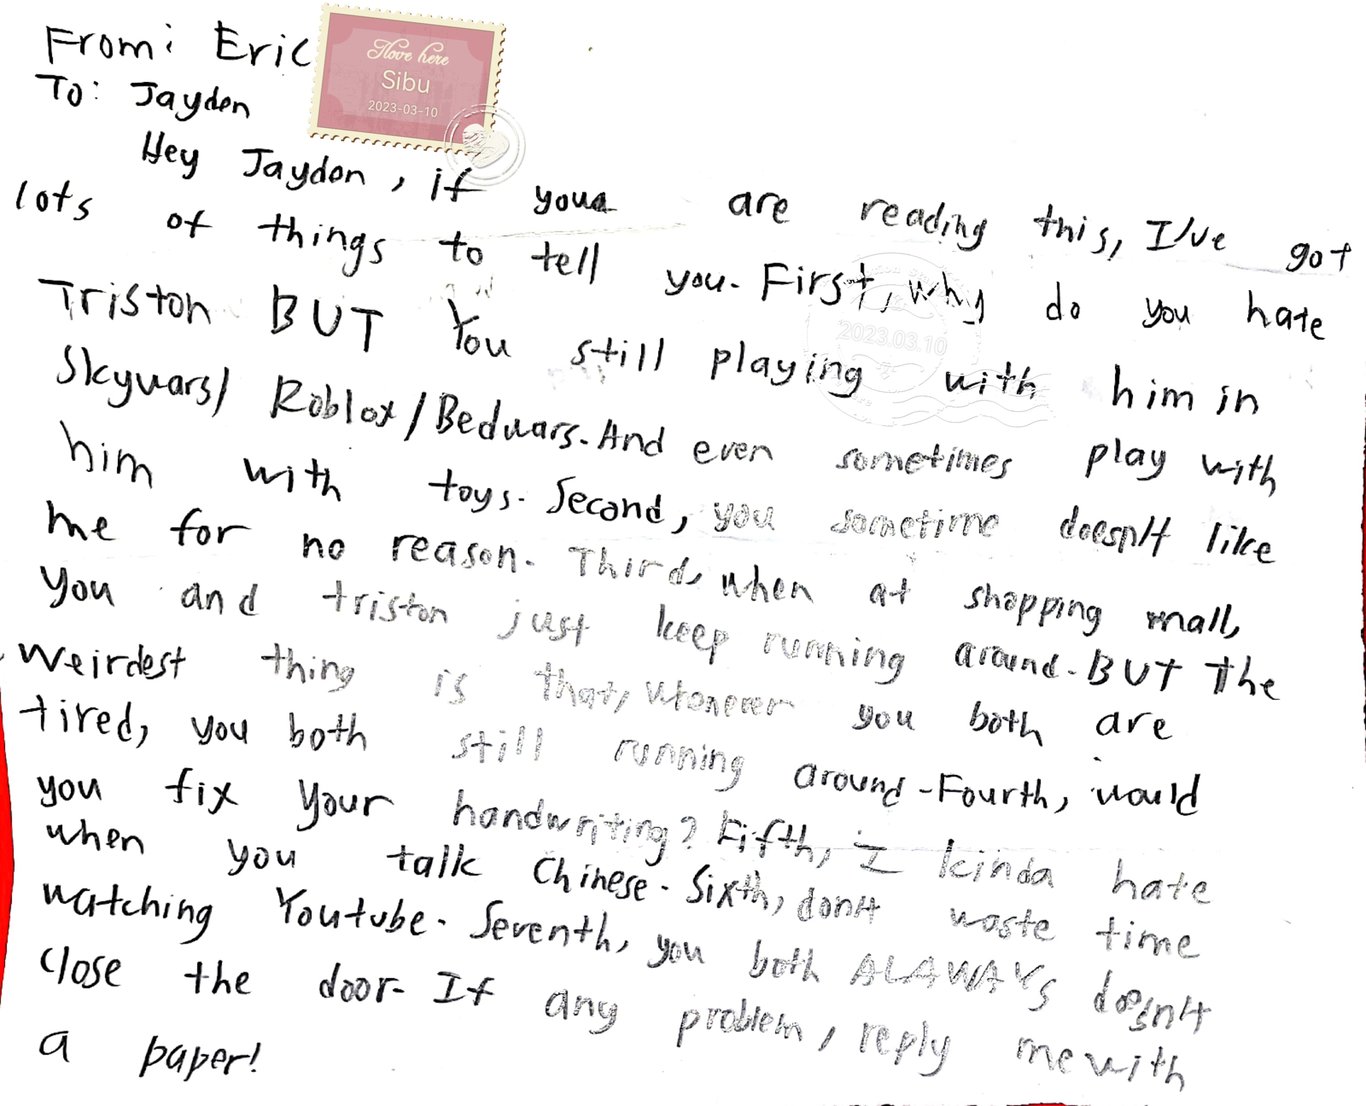 From: Eric
To: Jaydon
I love here
Sibu
2023-03-10
Hey Jaydon, if you are reading this, I've got
lots of things to tell you. First, why do you hate
Triston BUT You still playing with him in
2023.03.10
Skywars/ Roblox/Bedwars. And even sometimes play with
him with toys. Second, you sometime doesn't like
me for no reason. Third, when at shopping mall,
you and triston just keep running around. BUT the
weirdest thing is that, whenever you both are
tired, you both still running around. Fourth, would
you fix your handwriting? Fifth, I kinda hate
when you talk Chinese. Sixth, don't waste time
watching Youtube. Seventh, you both ALAWAYS doesn't
close the door. If any problem, reply me with
a paper!